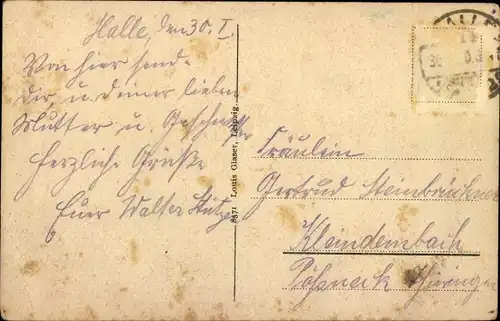 Halle, den 30. I.
Von hier sende
Dir u. deiner lieben
Mutter u. Geschwister
herzliche Grüße
Euer Walter
8471 Louis Glaser, Leipzig.
HALLE
30
Fräulein
Gertrud Steinbrückner
Kleindembach
Pößneck Thüringen